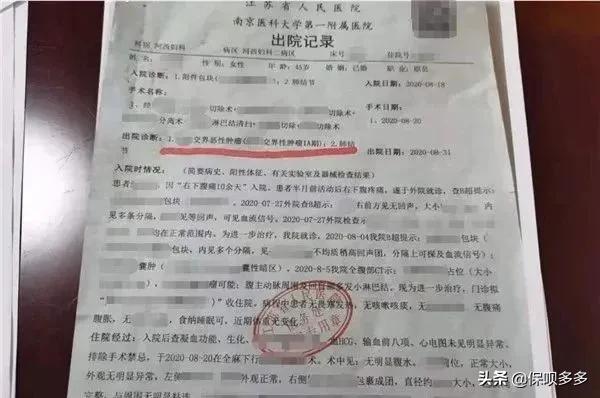 江苏省人民医院
南京医科大学第一附属医院
出院记录
科别 河西妇科 病区 河西妇科二病区 床号 住院号
姓名 性别:女性 年龄:45岁 婚姻:已婚 职业:职员
入院诊断:1.附件包块( ;2.肺结节 入院日期:2020-08-18
手术名称: 手术日期:
3、经 切除术+ 切除术+ 切除术+
分离术+ 淋巴结清扫+ 2020-08-20
出院诊断:1. 交界恶性肿瘤( 交界性肿瘤IA期);2.肺结 出院日期:2020-08-31
入院时情况:(简要病史、阳性体征、有关实验室及器械检查结果)
患者 因"右下腹痛10余天"入院。患者半月前活动后右下腹疼痛,遂于外院就诊,查B超示:
。2020-07-27外院查B超示: 右前方见无回声,大小
内见多条分隔, 见等回声,可见血流信号。2020-07-27外院检查示
均在正常范围内。为进一步治疗,我院就诊,2020-08-04我院B超提示: 包块(
包块,内见多个分隔,见 不均质稍高回声团,分隔上可探及血流信号);
囊肿( 囊性暗区)。2020-8-5我院全腹部CT示: 占位(大小
瘤可能;腹主动脉周围及 多发小淋巴结。现为进一步治疗,门诊拟
"收住院。病程中患者无畏寒发热,无咳嗽咳痰, 无腹痛
腹胀,无 ,食纳睡眠可,近期体重无变化。
住院经过:入院后查凝血功能、生化、 血HCG、输血前八项、心电图未见明显异常,
排除手术禁忌,于2020-08-20在全麻下行 术。术中见:无明显腹水, 位,正常大小,
外观无明显异常,左侧 外观正常,右侧 包裹成团,直径约 大小,
完整,与周围无明显粘连
专用章
头条 @保呗多多